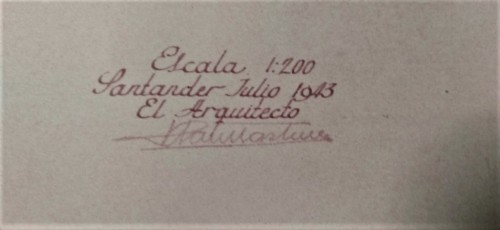 Escala 1:200
Santander Julio 1943
El Arquitecto